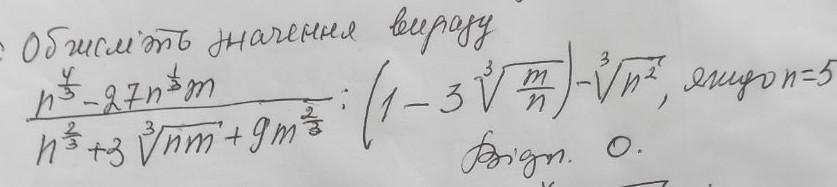 Обчисліть значення виразу
\frac{n^{\frac{4}{3}} - 27n^{\frac{1}{3}}m}{n^{\frac{2}{3}} + 3\sqrt[3]{nm} + 9m^{\frac{2}{3}}} : \left(1 - 3\sqrt[3]{\frac{m}{n}}\right) - \sqrt[3]{n^2}, якщо n=5
Відп. 0.